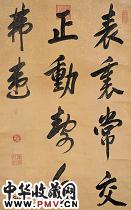 表裏常交
正動靜
弗違
中华收藏网
WWW.PMV.CN